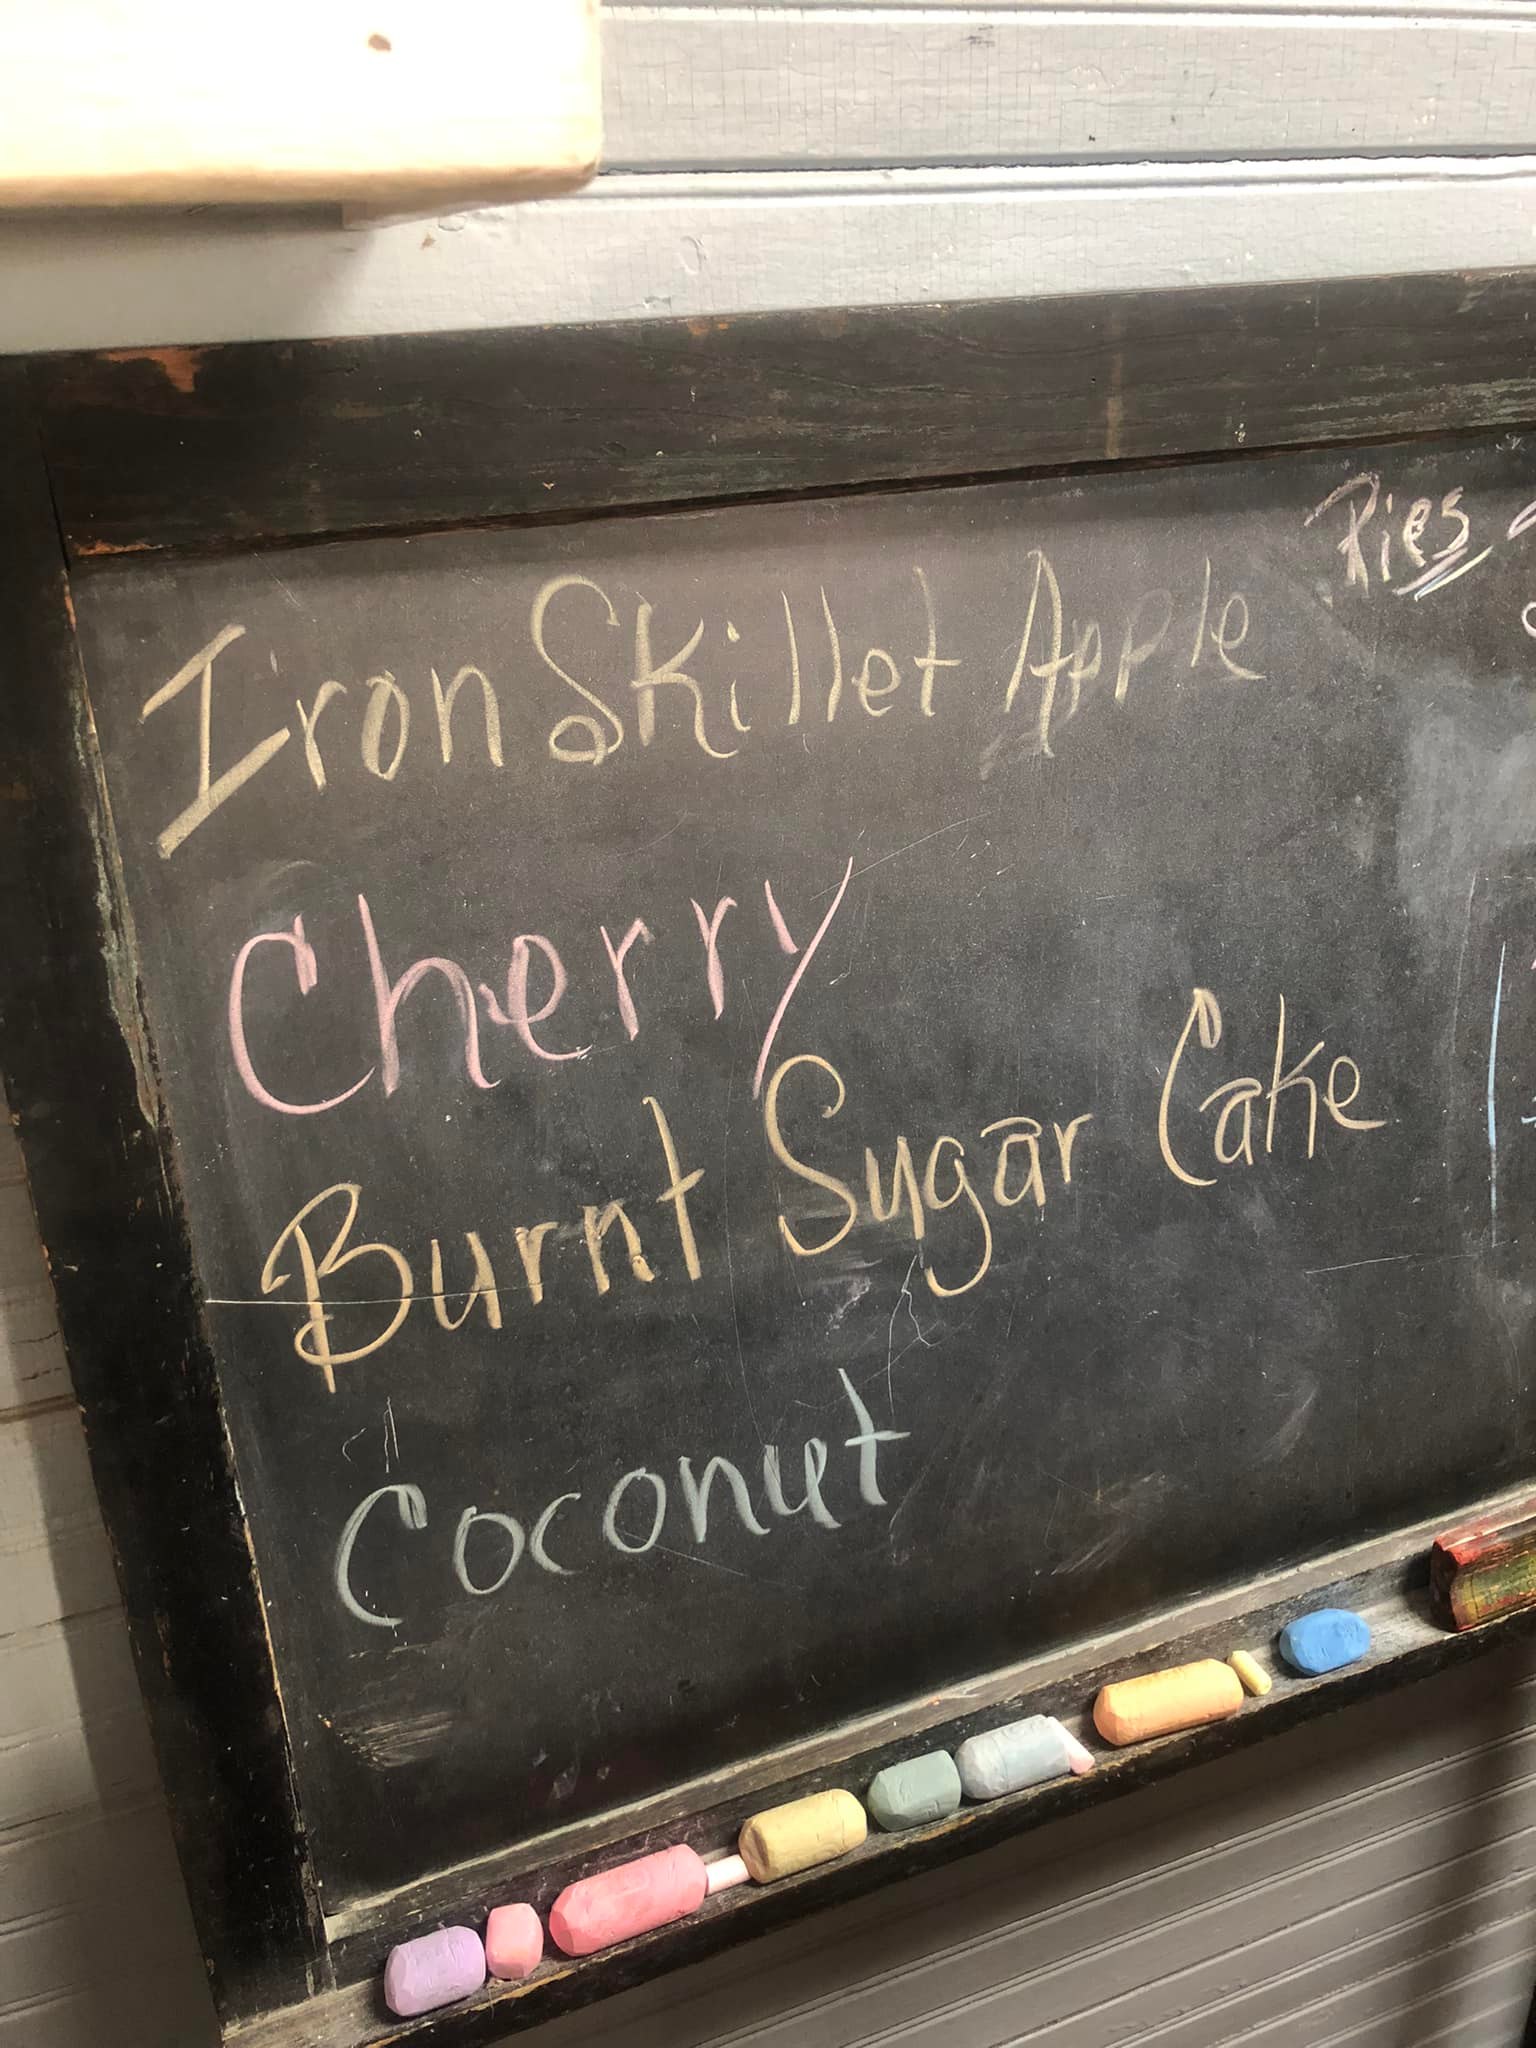 Pies
Iron Skillet Apple
Cherry
Burnt Sugar Cake
Coconut